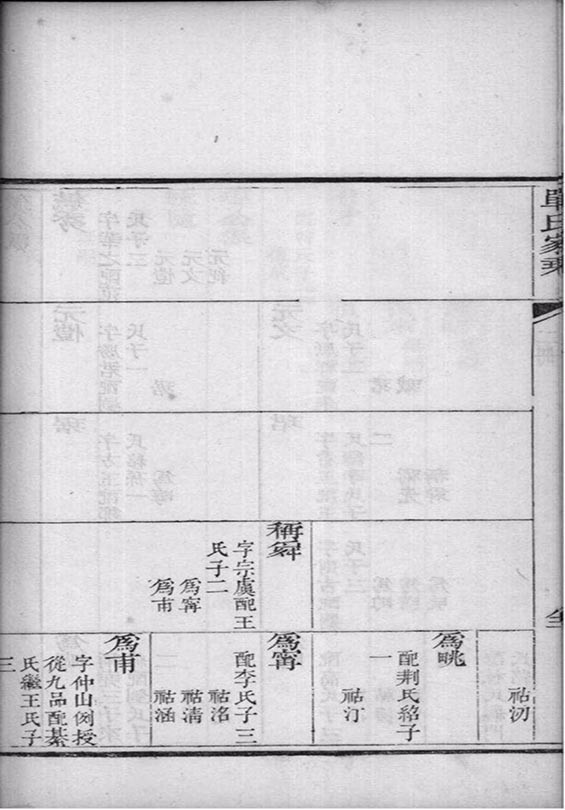 單氏家乘
稱舜
字宗虞配王
氏子二
爲甯
爲甫
祜沏
爲眺
配荆氏紹子
一
祜汀
爲甯
配李氏子三
祜洺
祜清
祜涵
爲甫
字仲山例授
從九品配綦
氏繼王氏子
三